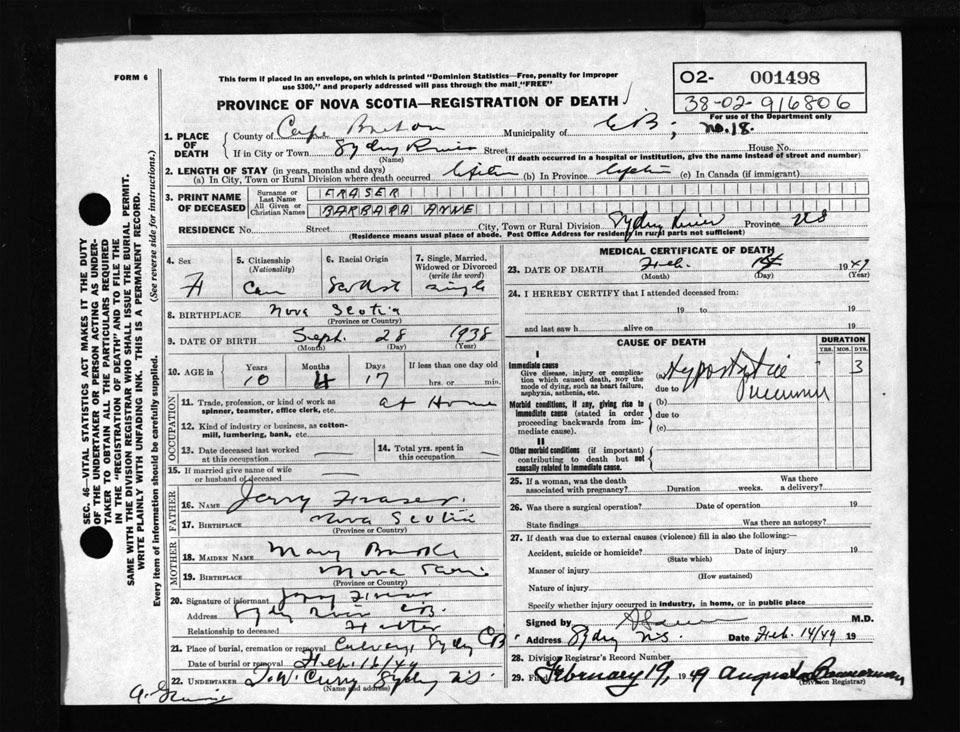 FORM 6
This form if placed in an envelope, on which is printed "Dominion Statistics—Free, penalty for improper
use $300," and properly addressed will pass through the mail "FREE"
02- 001498
38-02-916806
For use of the Department only
PROVINCE OF NOVA SCOTIA—REGISTRATION OF DEATH
no. 18.
1. PLACE OF DEATH County of Cape Breton Municipality of C B;
If in City or Town Sydney River Street House No.
(Name) (If death occurred in a hospital or institution, give the name instead of street and number)
2. LENGTH OF STAY (in years, months and days)
(a) In City, Town or Rural Division where death occurred Lifetime (b) In Province Lifetime (c) In Canada (if immigrant)
3. PRINT NAME OF DECEASED
Surname or Last Name FRASER
All Given or Christian Names BARBARA ANNE
RESIDENCE No. Street City, Town or Rural Division Sydney River Province NS
(Residence means usual place of abode. Post Office Address for residents in rural parts not sufficient)
4. Sex F
5. Citizenship (Nationality) Can
6. Racial Origin
7. Single, Married, Widowed or Divorced (write the word) Single
8. BIRTHPLACE Nova Scotia
(Province or Country)
9. DATE OF BIRTH Sept. 28 1938
(Month) (Day) (Year)
10. AGE in Years 10 Months 4 Days 17 If less than one day old hrs. or min.
OCCUPATION
11. Trade, profession, or kind of work as spinner, teamster, office clerk, etc. at Home
12. Kind of industry or business, as cotton-mill, lumbering, bank, etc.
13. Date deceased last worked at this occupation —
14. Total yrs. spent in this occupation —
15. If married give name of wife or husband of deceased
FATHER
16. NAME Jerry Fraser
17. BIRTHPLACE Nova Scotia
(Province or Country)
MOTHER
18. MAIDEN NAME Mary Burke
19. BIRTHPLACE Nova Scotia
(Province or Country)
20. Signature of informant Jerry Fraser
Address Sydney River CB.
Relationship to deceased Father
21. Place of burial, cremation or removal Calvary, Sydney CB
Date of burial or removal Feb. 16/49
22. UNDERTAKER T. W. Curry Sydney NS
(Name and address)
MEDICAL CERTIFICATE OF DEATH
23. DATE OF DEATH Feb. 1949
(Month) (Day) (Year)
24. I HEREBY CERTIFY that I attended deceased from:
19 to 19
and last saw h alive on 19
CAUSE OF DEATH
DURATION
YRS. MOS. DYS.
I
Immediate cause
Give disease, injury or complication which caused death, not the mode of dying, such as heart failure, asphyxia, asthenia, etc.
(a) Hypostatic 3
due to Pneumonia
Morbid conditions, if any, giving rise to immediate cause (stated in order proceeding backwards from immediate cause).
(b)
due to
(c)
II
Other morbid conditions (if important) contributing to death but not causally related to immediate cause.
25. If a woman, was the death associated with pregnancy? Duration weeks. Was there a delivery?
26. Was there a surgical operation? Date of operation 19
State findings Was there an autopsy?
27. If death was due to external causes (violence) fill in also the following:—
Accident, suicide or homicide? Date of injury 19
(State which)
Manner of injury
(How sustained)
Nature of injury
Specify whether injury occurred in industry, in home, or in public place
Signed by M.D.
Address Sydney N.S. Date Feb. 14/49 19
28. Division Registrar's Record Number
29. Filed February 19, 1949 Augusta Bannerman
(Division Registrar)
SEC. 46—VITAL STATISTICS ACT MAKES IT THE DUTY
OF THE UNDERTAKER OR PERSON ACTING AS UNDER-
TAKER TO OBTAIN ALL THE PARTICULARS REQUIRED
IN THE "REGISTRATION OF DEATH" AND TO FILE THE
SAME WITH THE DIVISION REGISTRAR WHO SHALL ISSUE THE BURIAL PERMIT.
WRITE PLAINLY WITH UNFADING INK. THIS IS A PERMANENT RECORD.
Every item of information should be carefully supplied. (See reverse side for instructions.)